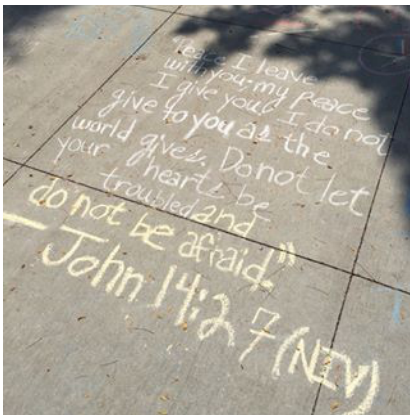 "Peace I leave
with you; my peace
I give you. I do not
give to you as the
world gives. Do not let
your hearts be
troubled and
do not be afraid."
— John 14:27 (NIV)